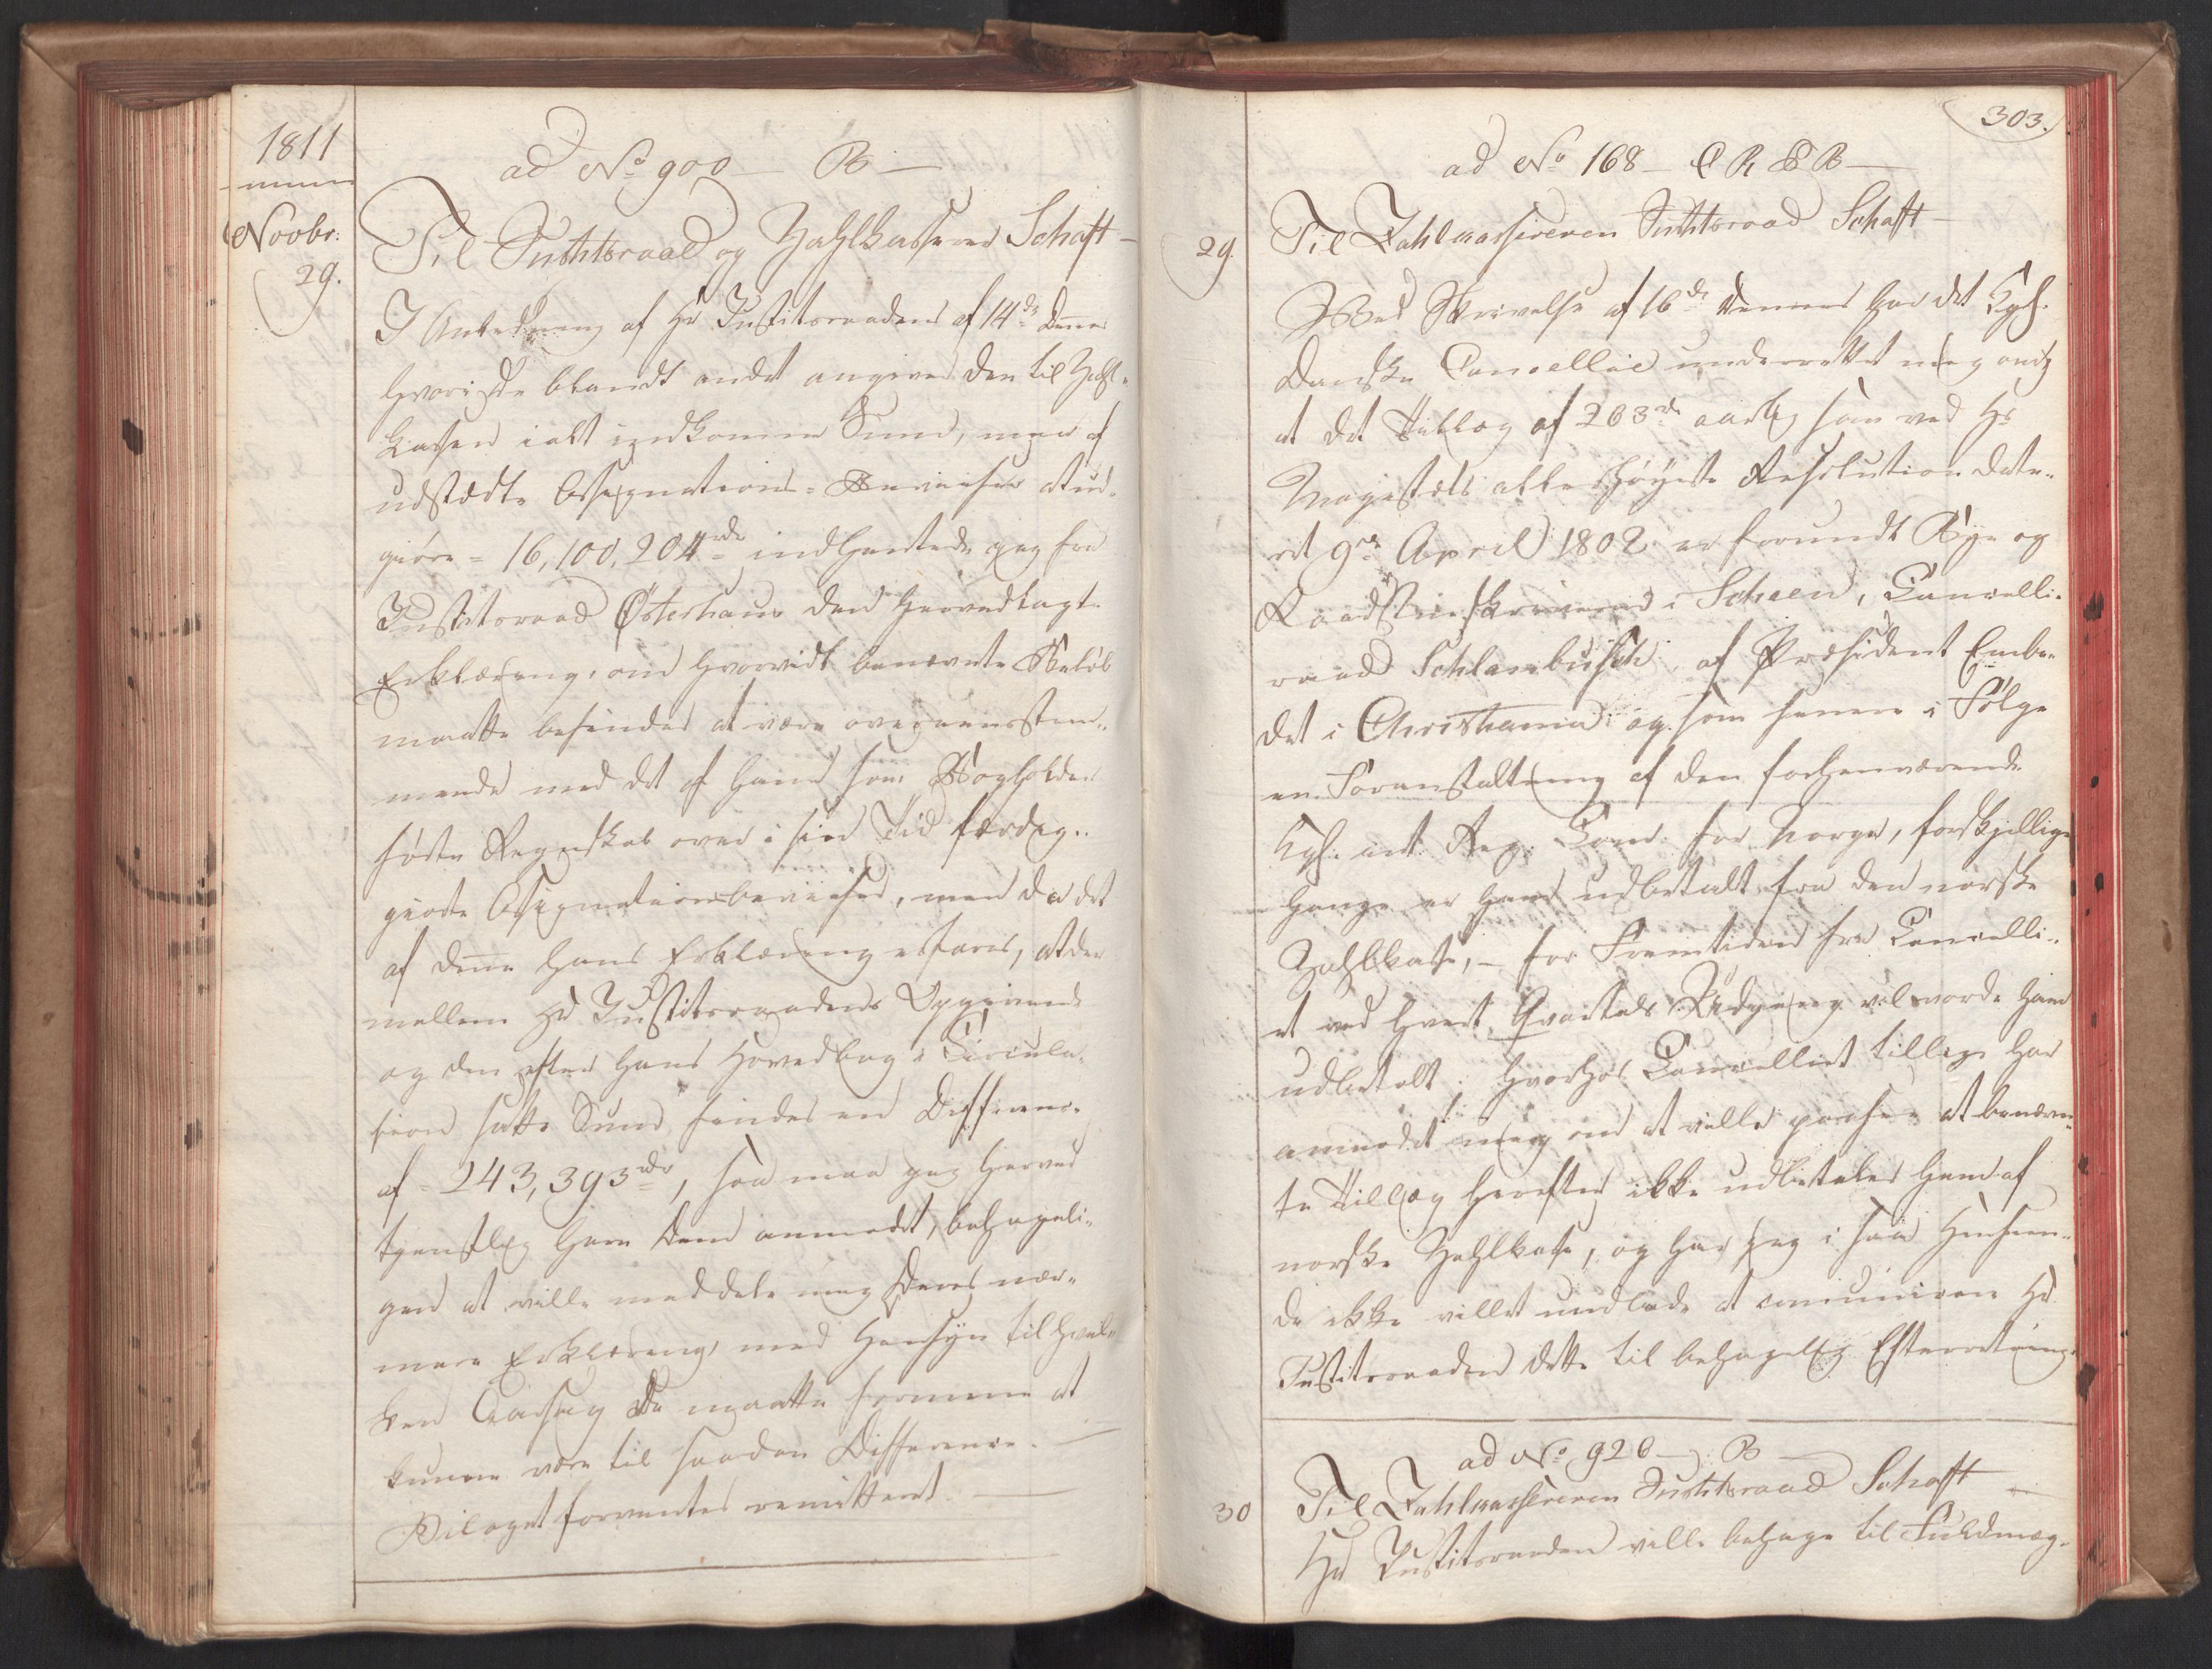 1811
Novbr:
29.
ad No 900 — B —
Til Justitsraad og Zahlkasserer Schaft —
I Anledning af Hr Justitsraadens af 14de dennes
hvori De blandt andet angiver den til Zahl-
kassen i alt indkomne Sum, men af
udstædte Assignations-Beviser at ud-
giøre = 16,100,204 rdr indhentede jeg fra
Justitsraad Österhaus den herved lagte
Erklæring, om hvorvidt benævnte Beløb
maatte befindes at være overeensstem-
mende med det af ham som Bogholder
førte Regnskab over i sin Tid færdig-
giorte Assignationsbeviser, men da det
af denne hans Erklæring erfares, at der
mellem Hr Justitsraadens Opgivende
og den efter hans Hovedbog i Circula-
tion satte Sum findes en Difference
af - 243,393 rdr, saa maa jeg herved
tjenstlig have Dem anmodet, behageli-
gen at ville meddele mig Deres nær-
mere Erklæring med Hensyn til hvil-
ken Aarsag De maatte formene at
kunne være til saadan Difference. —
Bilaget forventes remitteret. —
303.
ad No 168 — C R & B —
29.
Til Zahlkassereren Justitsraad Schaft —
Ved Skrivelse af 16de dennes har det Kgl.
Danske Cancellie underrettet mig om,
at det Tillæg af 203 rdr aarlig som ved Hs
Majestæts allerhøyeste Resolution date-
ret 9de April 1802 er forundt Bye og
Raadstueskriveren i Scheen, Cancelli-
raad Schlambusch, af Præsident Embe-
det i Christiania og som senere i Følge
en Foranstaltning af den forhenværende
Kgl. int. Reg: Com: for Norge, forskjellige
Gange er ham udbetalt fra den norske
Zahlkasse, — for Fremtiden fra Cancelli-
et ved hvert Qvartals Udgang vil vorde ham
udbetalt: hvorhos Cancelliet tillige har
anmodet mig om at ville paasee at benævn-
te Tillæg herefter ikke udbetales ham af
norske Zahlkasse, og har jeg i saa Henseen-
de ikke villet undlade at comunicere Hr
Justitsraaden dette til behagelig Efterretning.
ad No 926 — B —
30
Til Zahlkassereren Justitsraad Schafft —
Hr Justitsraaden ville behage til Fuldmæg-